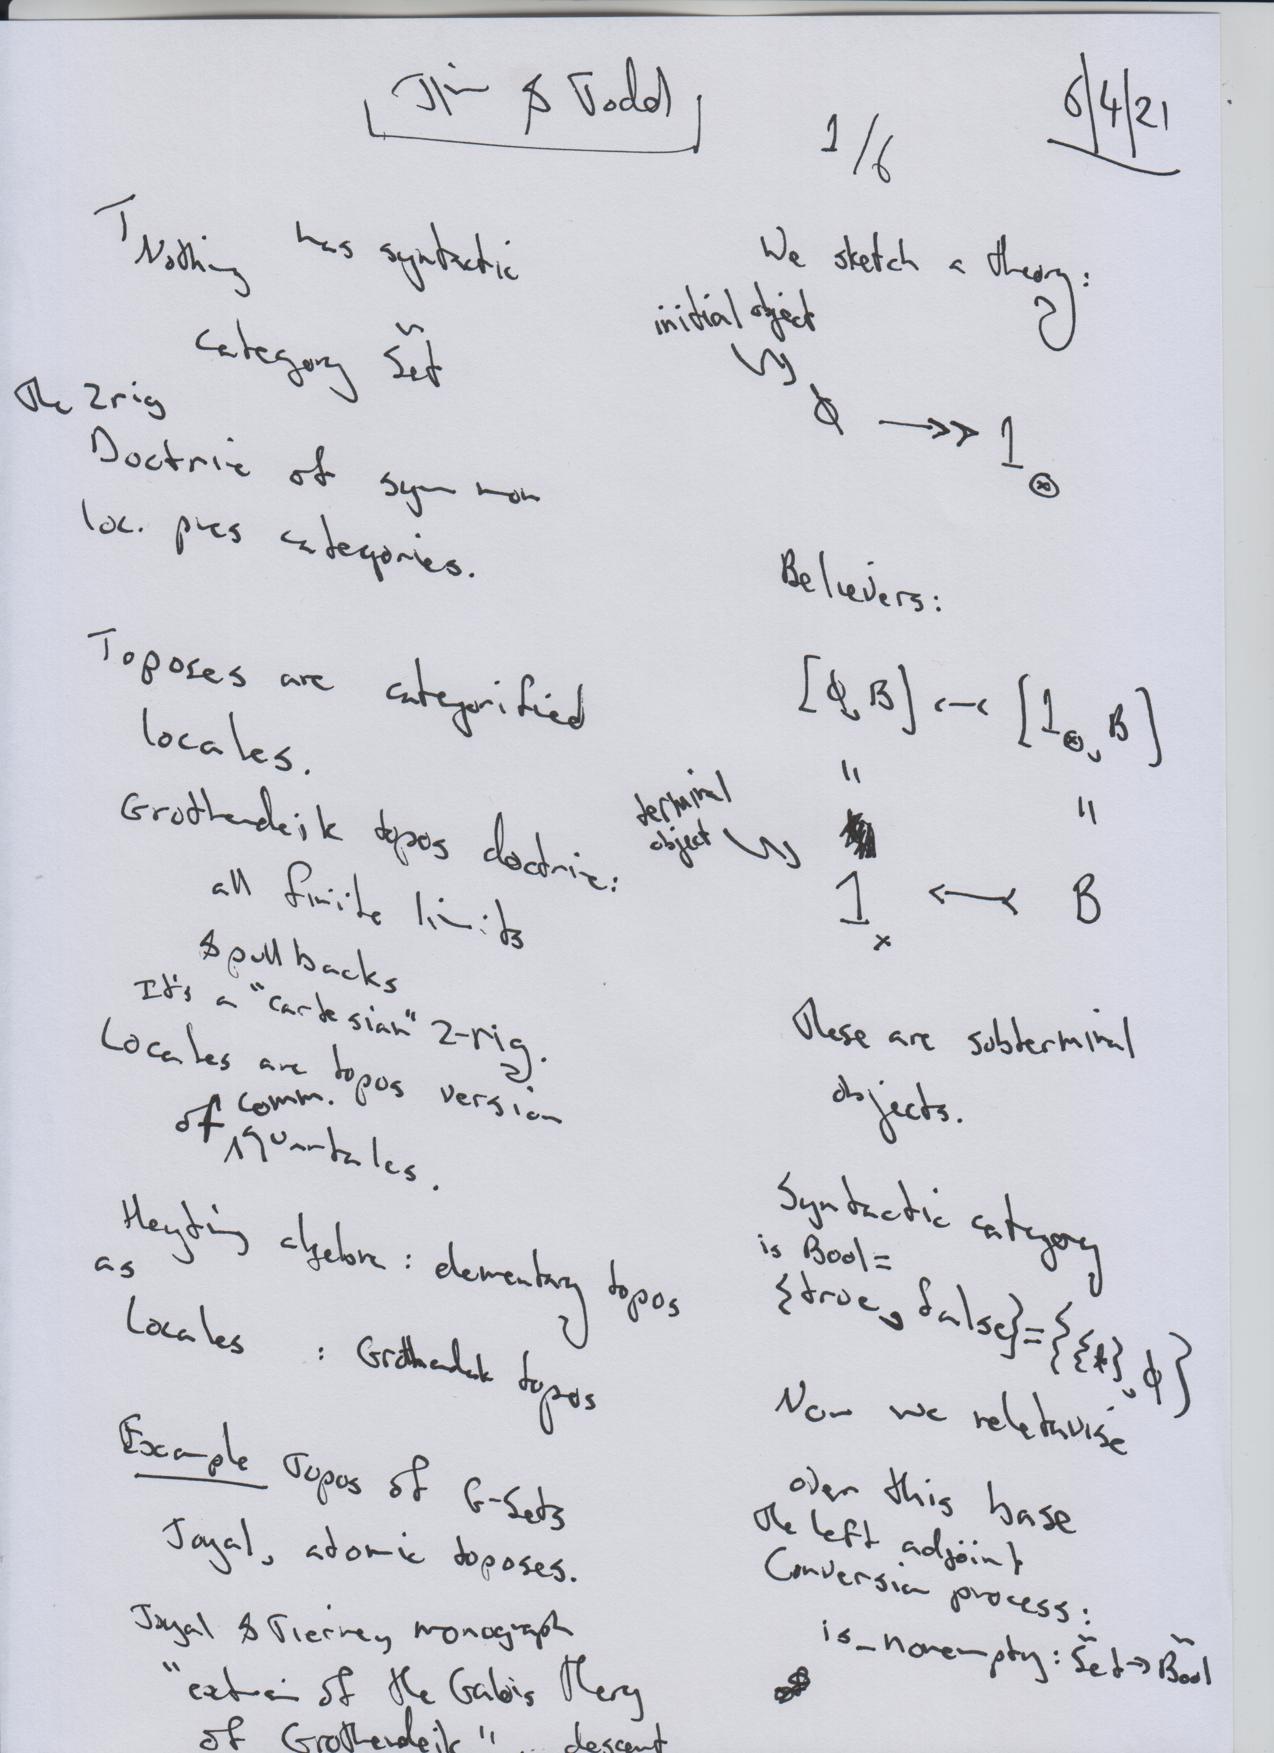 Jim & Todd
1/6
6/4/21
T Nothing has syntactic
category S̃et
The 2rig
Doctrine of sym mon
loc. pres categories.
Toposes are categorified
locales.
Grothendeik topos doctrine:
all finite limits
& pullbacks
It's a "cartesian" 2-rig.
Locales are topos version
of comm. quantales.
Heyting algebra : elementary topos
as
Locales : Grothendeik topos
Example Topos of G-Sets
Joyal, atomic toposes.
Joyal & Tierney monograph
"extension of the Galois Theory
of Grothendeik" ... descent
We sketch a theory:
initial object
ϕ ↠ 1⊗
Believers:
[ϕ, B] ↢ [1⊗, B]
" "
terminal
object
1× ↢ B
These are subterminal
objects.
Syntactic category
is Bool =
{true, false} = {{*}, ϕ}
Now we reletavise
over this base
The left adjoint
Conversion process:
is_nonempty: S̃et → B̃ool